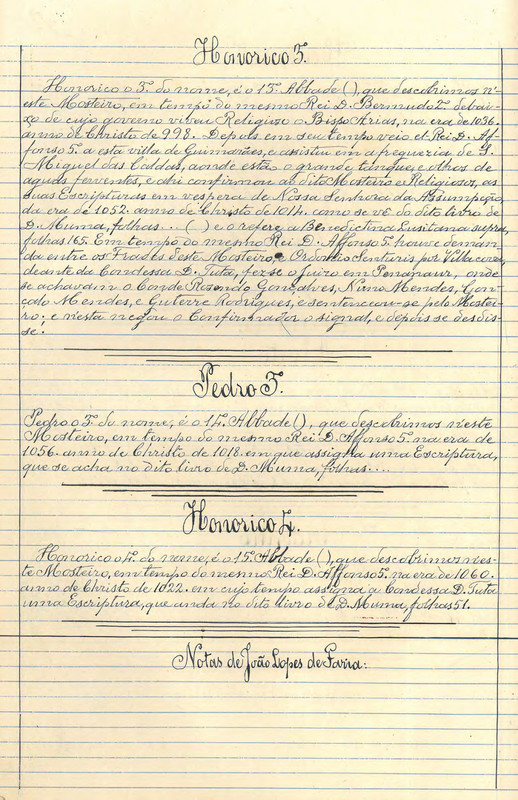 Honorico 3.
Honorico o 3. do nome, é o 13. Abbade ( ), que descobrimos n'
este Mosteiro, em tempo do mesmo Rei D. Bermudo 2. debai-
xo de cujo governo viveu Religiozo o Bispo Arias, na era de 1036.
anno de Christo de 998. Depois em seu tempo veio el Rei D. Af-
fonso 5. a esta villa de Guimarães, e assistiu em a freguezia de S.
Miguel das Caldas, aonde estão o grande tanque, e obras de
aguas ferventes, e ahi confirmou ao dito Mosteiro e Religiozos, as
suas Escripturas em vespera de Nossa Senhora da Assumpção,
da era de 1052. anno de Christo de 1014. como se vê do dito livro de
D. Muma, folhas... ( ) e o refere a Benedictina Lusitana supra,
folhas 165. Em tempo do mesmo Rei D. Affonso 5. houve deman
da entre os Frades deste Mosteiro, e Ordonio Senturis, por Villa cova,
deante da Condessa D. Tuta, fez-se o juizo em , onde
se achavam o Conde Rozendo Gonçalves, Nuno Mendes, Gon-
çalo Mendes, e Guterre Rodrigues, e sentenceou-se pelo Mostei-
ro: e n'esta negou o Confirmador o signal, e depois se desdis-
se.
Pedro 3.
Pedro o 3. do nome, é o 14. Abbade ( ), que descobrimos n'este
Mosteiro, em tempo do mesmo Rei D. Affonso 5. na era de
1056. anno de Christo de 1018. em que assigna uma Escriptura,
que se acha no dito livro de D. Muma, folhas....
Honorico 4.
Honorico o 4. do nome, é o 15. Abbade ( ), que descobrimos n'es-
te Mosteiro, em tempo do mesmo Rei D. Affonso 5. na era de 1060.
anno de Christo de 1022. em cujo tempo assigna a Condessa D. Tuta
uma Escriptura, que anda no dito livro de D. Muma, folhas 51.
Notas de João Lopes de Faria: